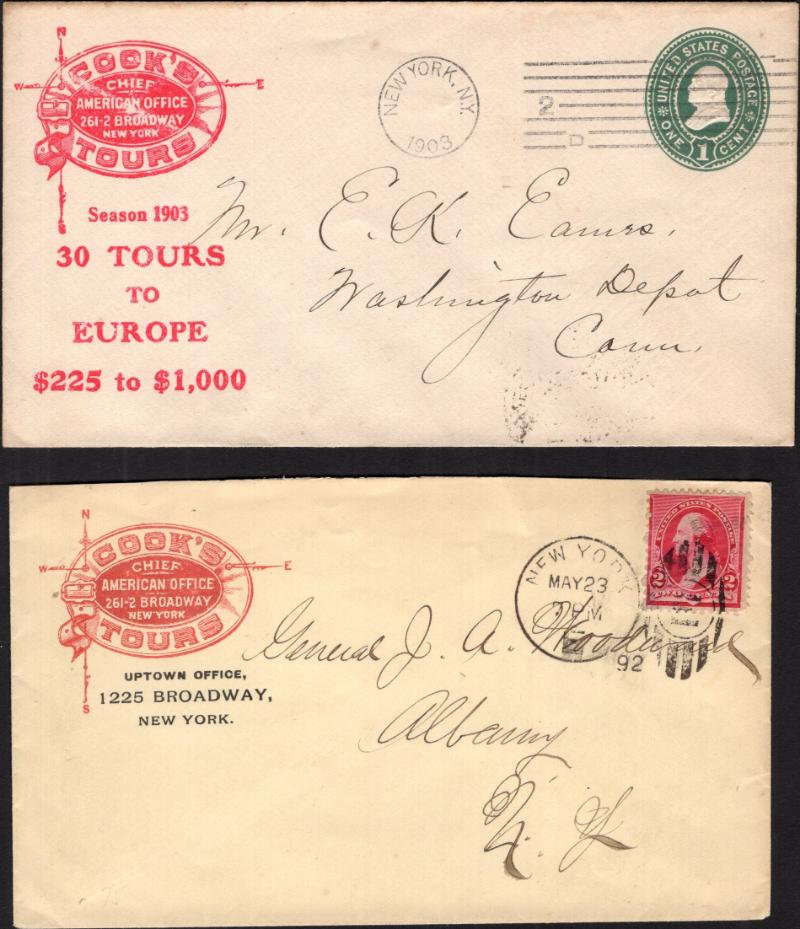 N
W E
COOK'S
CHIEF
AMERICAN OFFICE
261-2 BROADWAY
NEW YORK
TOURS
S
Season 1903
30 TOURS
TO
EUROPE
$225 to $1,000
NEW YORK, N.Y.
1903
2
D
UNITED STATES POSTAGE
ONE 1 CENT
Mr. E. K. Eames.
Washington Depot
Conn.
N
W E
COOK'S
CHIEF
AMERICAN OFFICE
261-2 BROADWAY
NEW YORK
TOURS
S
UPTOWN OFFICE,
1225 BROADWAY,
NEW YORK.
NEW YORK
MAY 23
PM
92
UNITED STATES POSTAGE
2 2
General J. A. Woodward
Albany
N. Y.